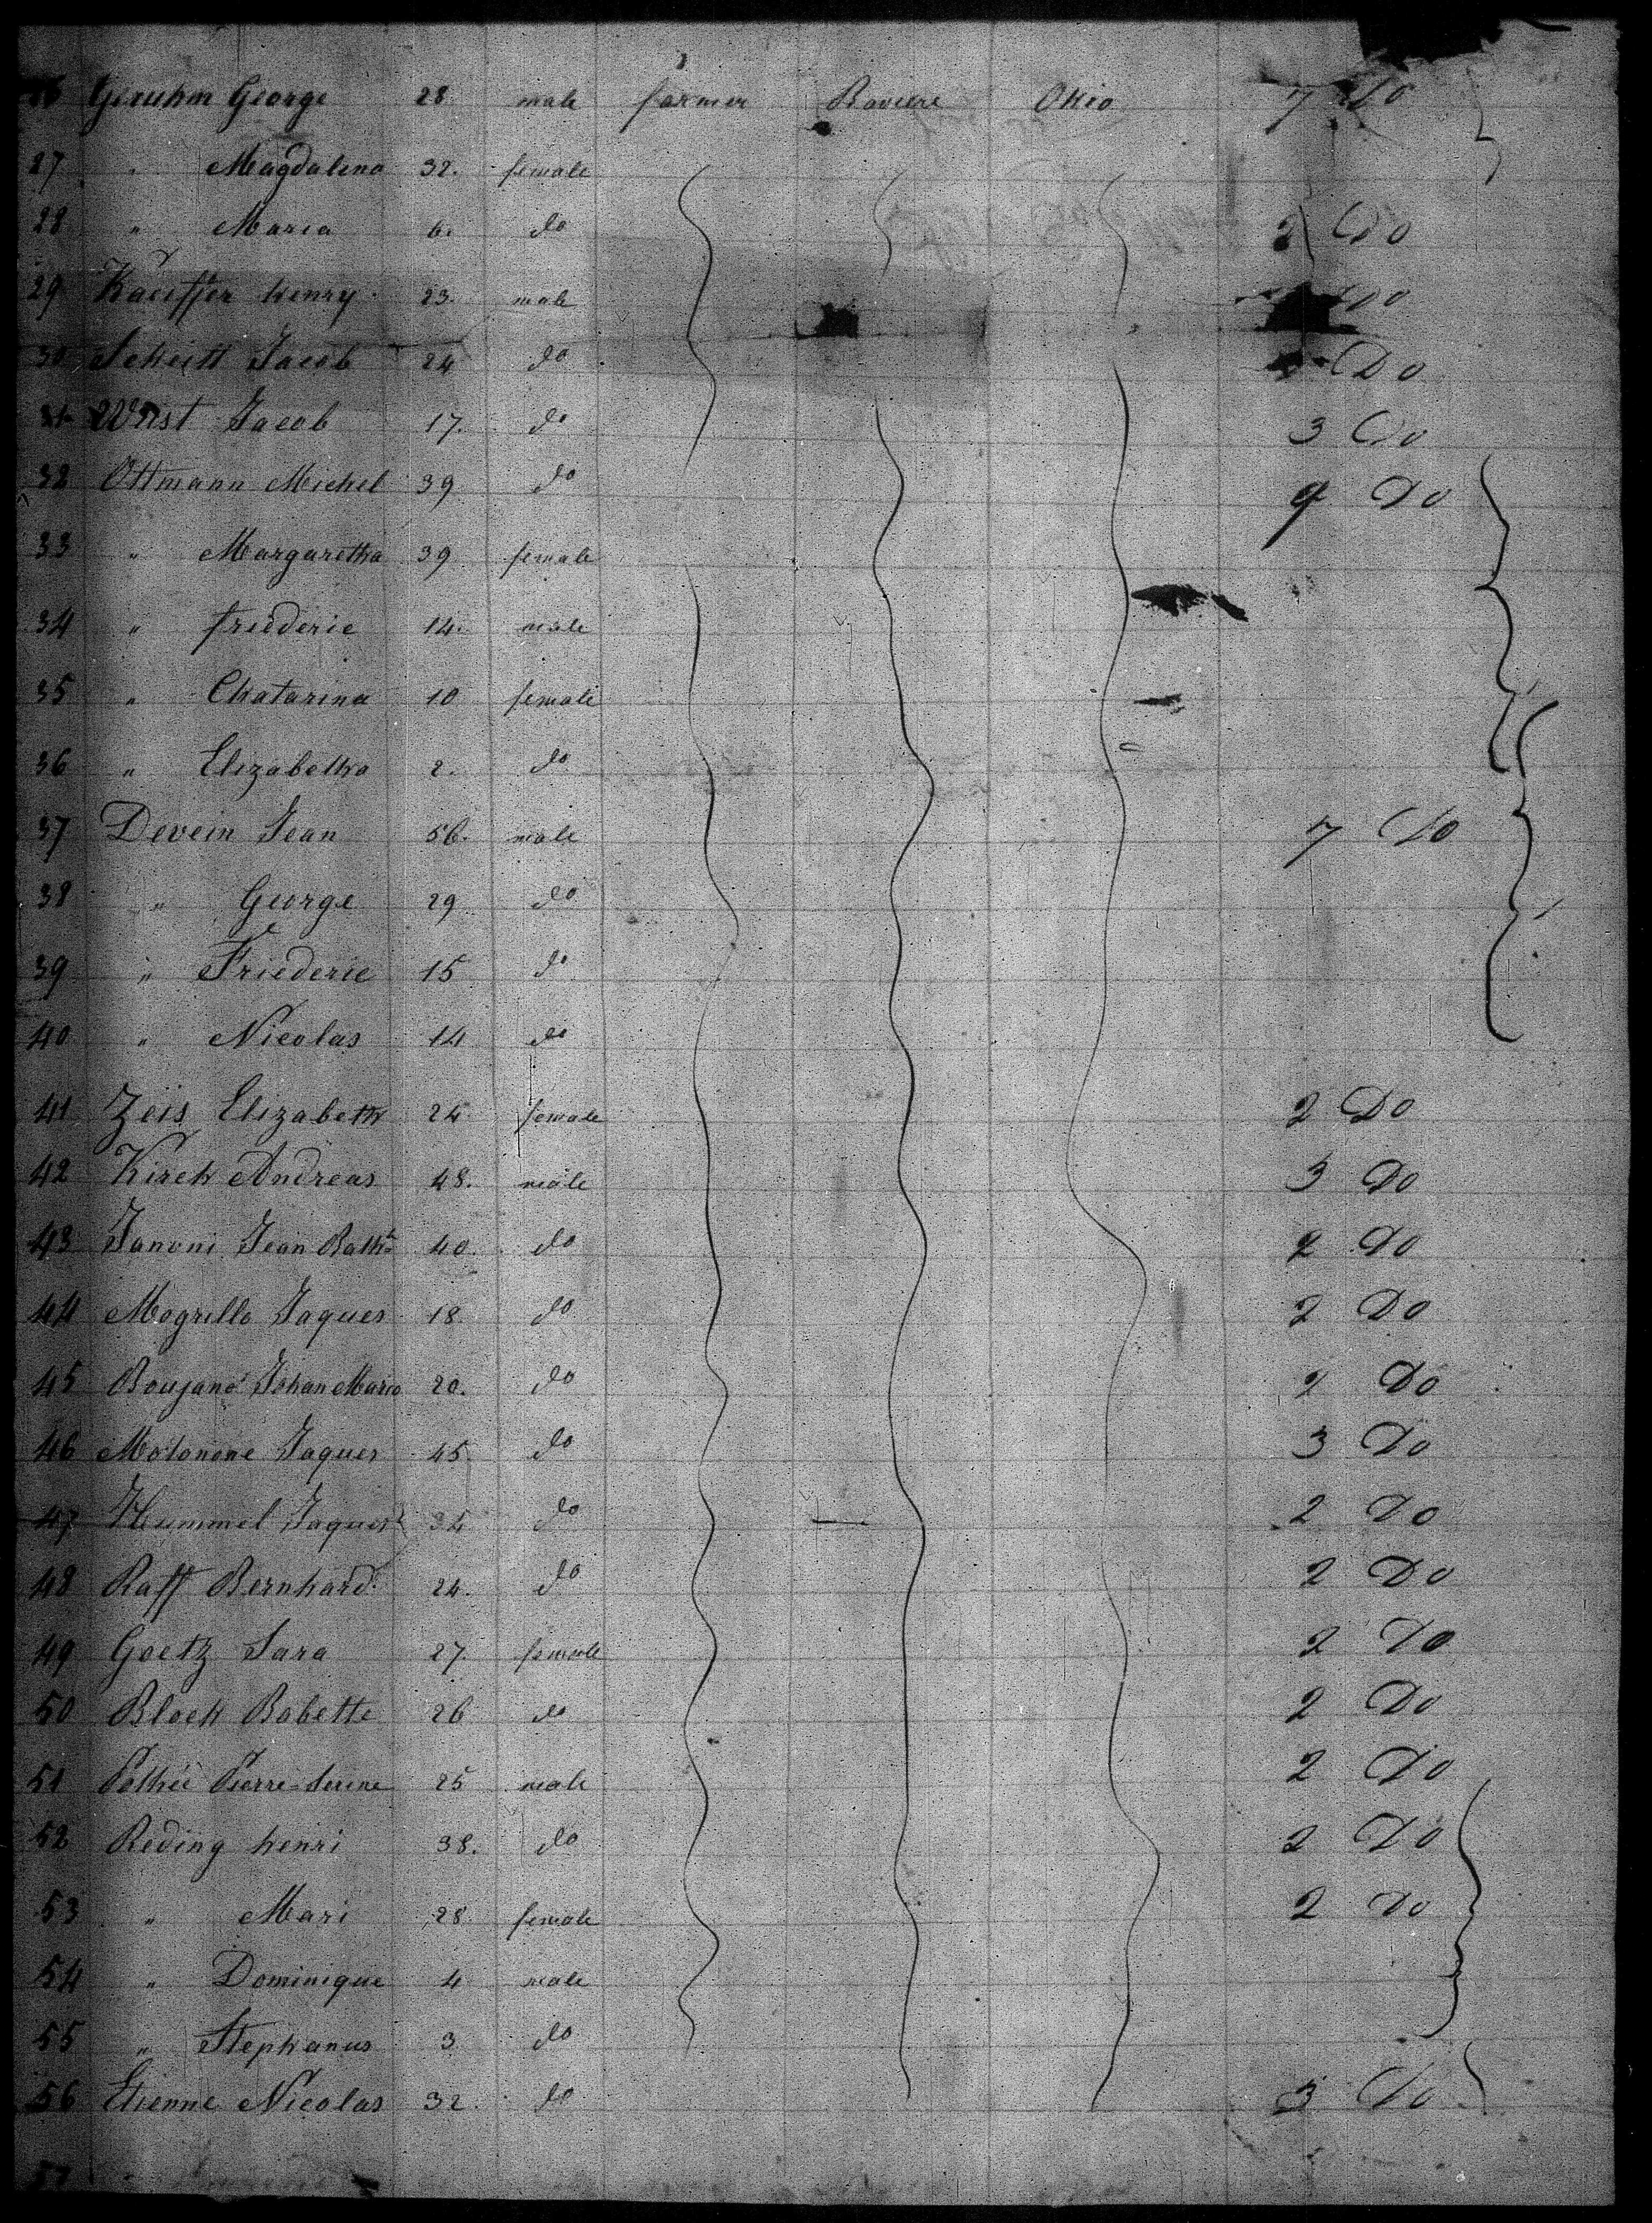 26 Geruhm George 28 male farmer Baviere Ohio 7 Do
27 " Magdalena 32. female
28 " Maria 6. do 2 Do
29 Kaeiffer henry 23. male Do
30 Scheitt Jacob 24 do Do
31 Wüst Jacob 17. do 3 Do
32 Ottmann Michel 39 do 9 Do
33 " Margaretha 39 female
34 " friederic 14. male
35 " Chatarina 10 female
36 " Elizabetha 2. do
37 Devein Jean 56. male 7 Do
38 " George 29 do
39 " Friederic 15 do
40 " Nicolas 14 do
41 Zeis Elizabeth 24 female 2 Do
42 Kirch Andreas 48. male 3 Do
43 Janoni Jean Bath.te 40. do 2 Do
44 Mogrillo Jaques 18. do 2 Do
45 Boujano Johan Maria 20. do 2 Do
46 Molonone Jaques 45. do 3 Do
47 Hummel Jaques 34 do 2 Do
48 Raff Bernhard. 24. do 2 Do
49 Goetz Sara 27. female 2 Do
50 Bloch Babette 26 do 2 Do
51 Pierre 25 male 2 Do
52 Reding henri 38. do 2 Do
53 " Mari 28. female 2 Do
54 " Dominique 4 male
55 " Stephanus 3 do
56 Etienne Nicolas 32. do 3 Do
57